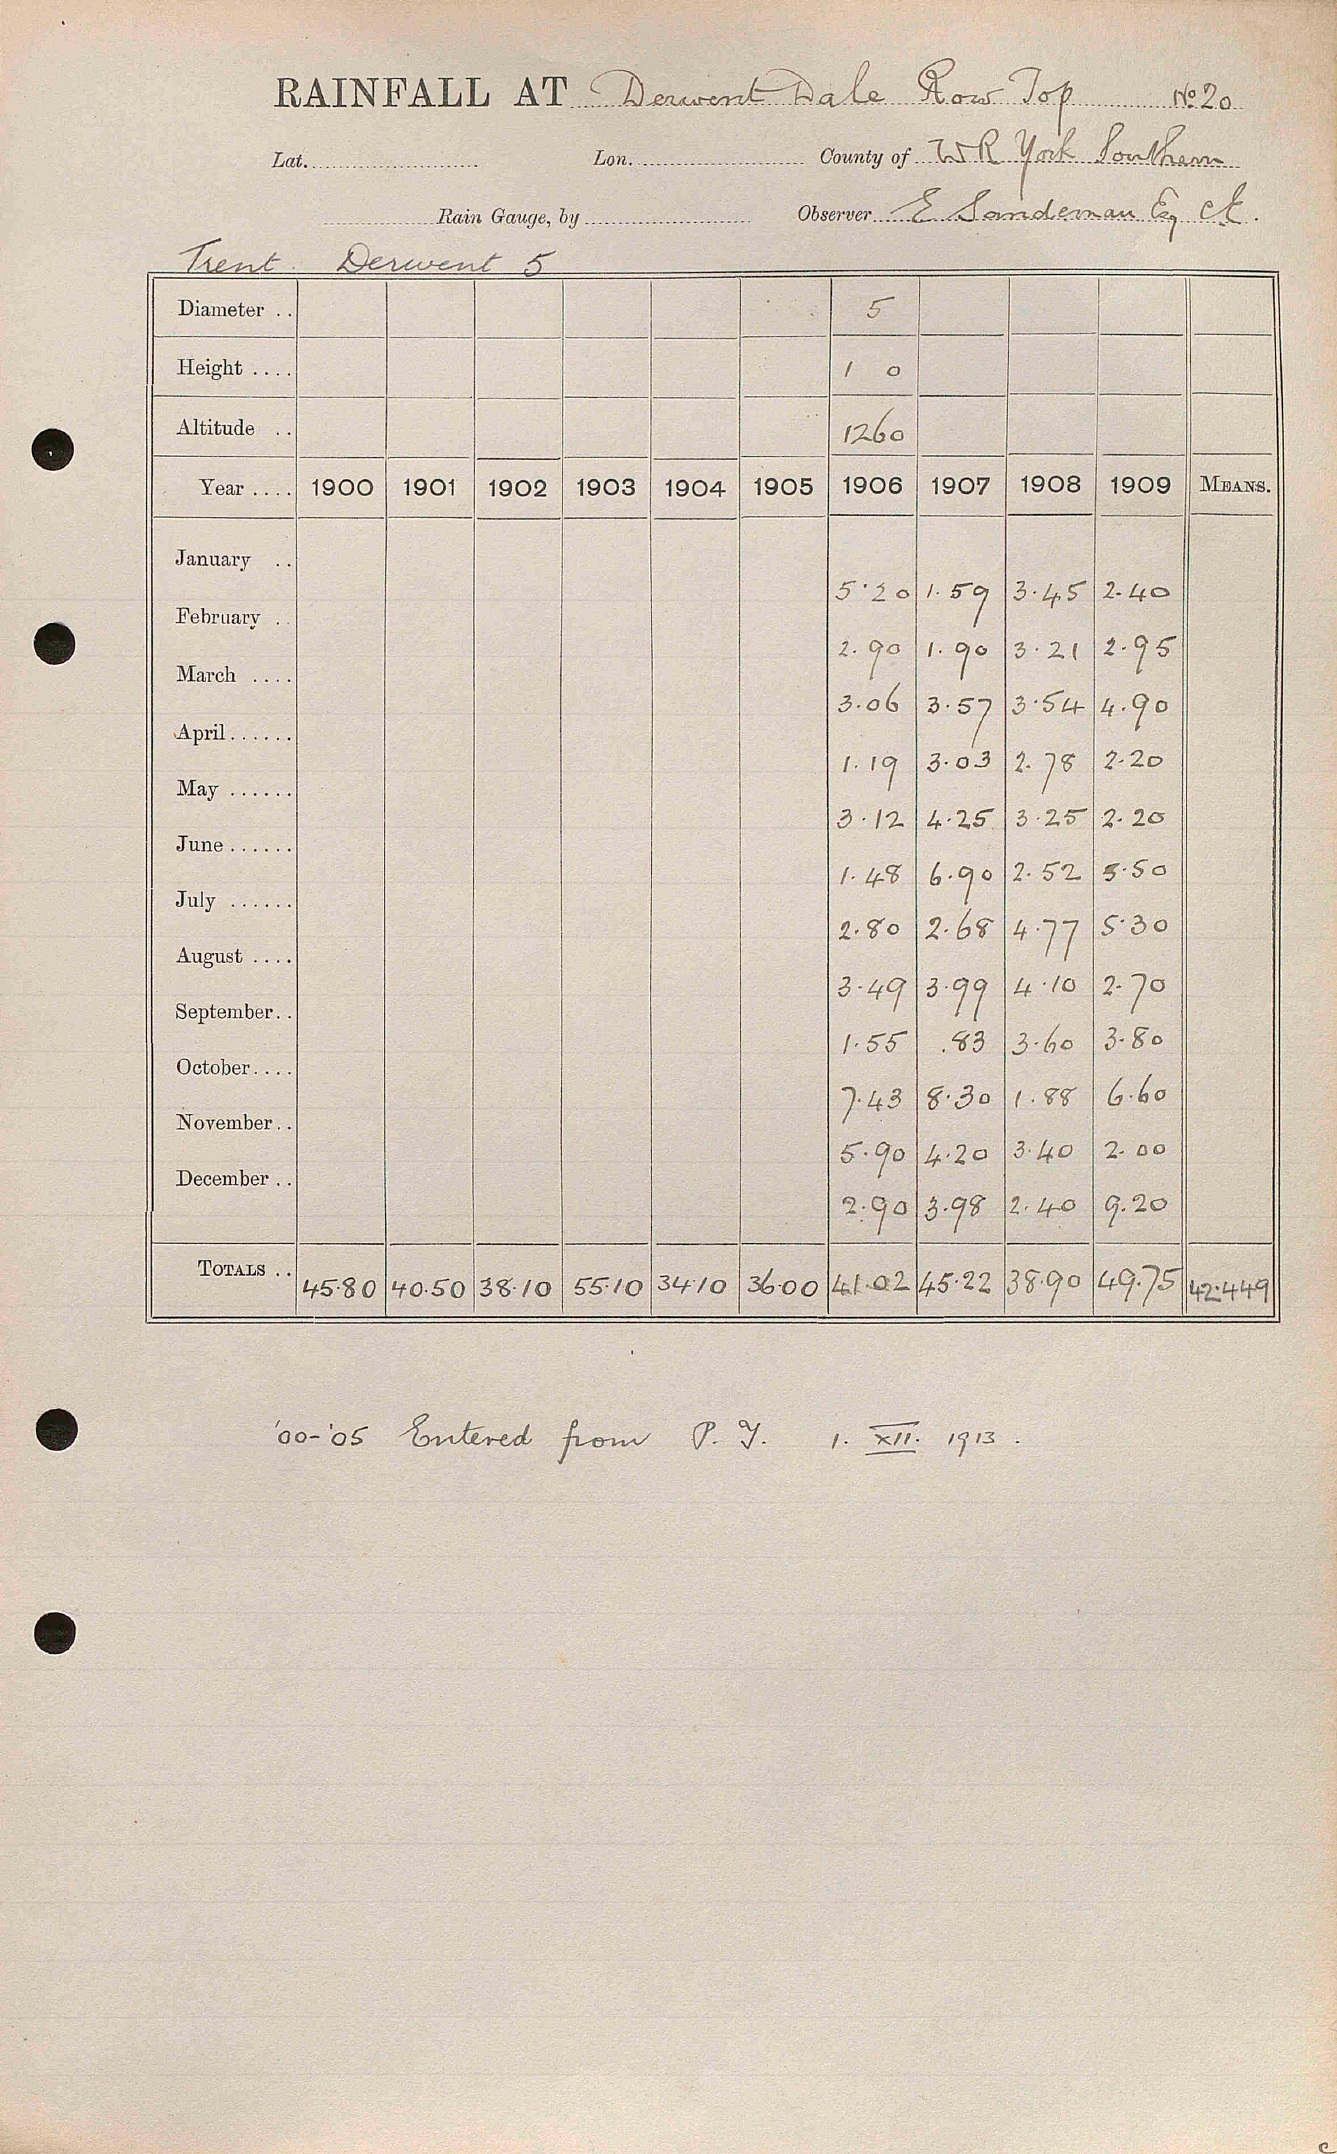 RAINFALL AT Derwent Dale Row Top No 20
Lat. Lon. County of WR York Southern
Rain Gauge, by Observer E Sandeman Esq
Trent. Derwent 5
Diameter .. 5
Height .... 1 0
Altitude .. 1260
Year .... 1900 1901 1902 1903 1904 1905 1906 1907 1908 1909 MEANS.
January .. 5.20 1.59 3.45 2.40
February .. 2.90 1.90 3.21 2.95
March .... 3.06 3.57 3.54 4.90
April...... 1.19 3.03 2.78 2.20
May ...... 3.12 4.25 3.25 2.20
June...... 1.48 6.90 2.52 5.50
July ...... 2.80 2.68 4.77 5.30
August .... 3.49 3.99 4.10 2.70
September.. 1.55 .83 3.60 3.80
October.... 7.43 8.30 1.88 6.60
November.. 5.90 4.20 3.40 2.00
December .. 2.90 3.98 2.40 9.20
TOTALS .. 45.80 40.50 38.10 55.10 34.10 36.00 41.02 45.22 38.90 49.75 42.449
'00-'05 Entered from P. Y. 1. XII. 1913.